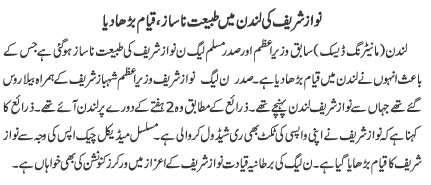 نواز شریف کی لندن میں طبیعت ناساز، قیام بڑھا دیا
لندن (مانیٹرنگ ڈیسک) سابق وزیر اعظم اور صدر مسلم لیگ ن نواز شریف کی طبیعت ناساز ہوگئی ہے جس کے
باعث انہوں نے لندن میں قیام بڑھا دیا ہے۔ صدر ن لیگ نواز شریف وزیر اعظم شہباز شریف کے ہمراہ بیلا روس
گئے تھے جہاں سے نواز شریف لندن پہنچے تھے۔ ذرائع کے مطابق وہ 2 ہفتے کے دورے پر لندن آئے تھے۔ ذرائع کا
کہنا ہے کہ نواز شریف نے اپنی واپسی کی ٹکٹ بھی ری شیڈول کروالی ہے۔ مسلسل میڈیکل چیک اپس کی وجہ سے نواز
شریف کا قیام بڑھایا گیا ہے۔ ن لیگ کی برطانیہ قیادت نواز شریف کے اعزاز میں ورکرز کنونشن کی بھی خواہاں ہے۔